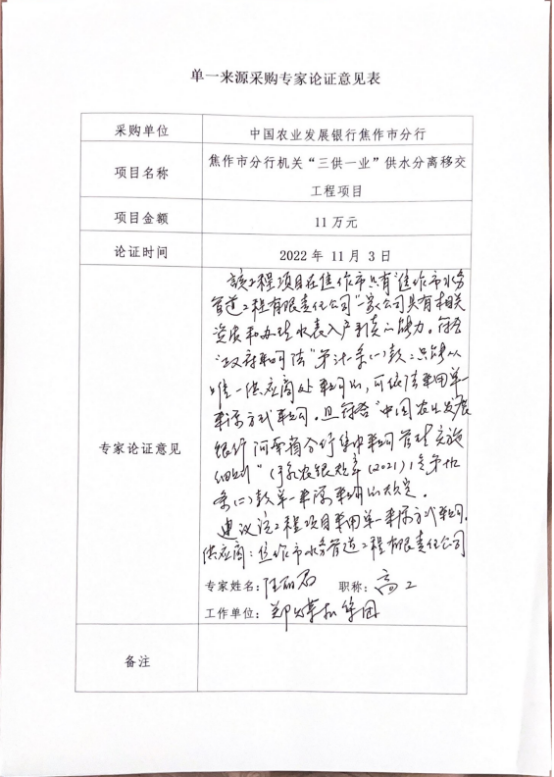 单一来源采购专家论证意见表
采购单位
中国农业发展银行焦作市分行
项目名称
焦作市分行机关“三供一业”供水分离移交
工程项目
项目金额
11万元
论证时间
2022 年 11 月 3 日
专家论证意见
该工程项目在焦作市只有“焦作市水务
管道工程有限责任公司”一家公司具有相关
资质和办理水表入户到表的能力。符合
“政府采购法”第卅一条(一)款:只能从
唯一供应商处采购的,可依法采用单一
来源方式采购。且符合“中国农业发展
银行河南省分行集中采购管理实施
细则”(豫农发银规章(2021)1号第
条(二)款单一来源采购的规定。
建议该工程项目采用单一来源方式采购。
供应商:焦作市水务管道工程有限责任公司
专家姓名:
职称:高工
工作单位:郑煤机集团
备注